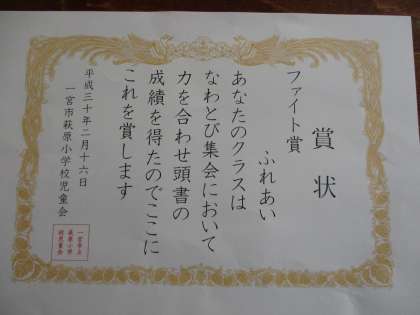 賞状
ファイト賞
ふれあい
あなたのクラスは
なわとび集会において
力を合わせ頭書の
成績を得たのでここに
これを賞します
平成三十年二月十六日
一宮市萩原小学校児童会
一宮市立
萩原小学
校児童会